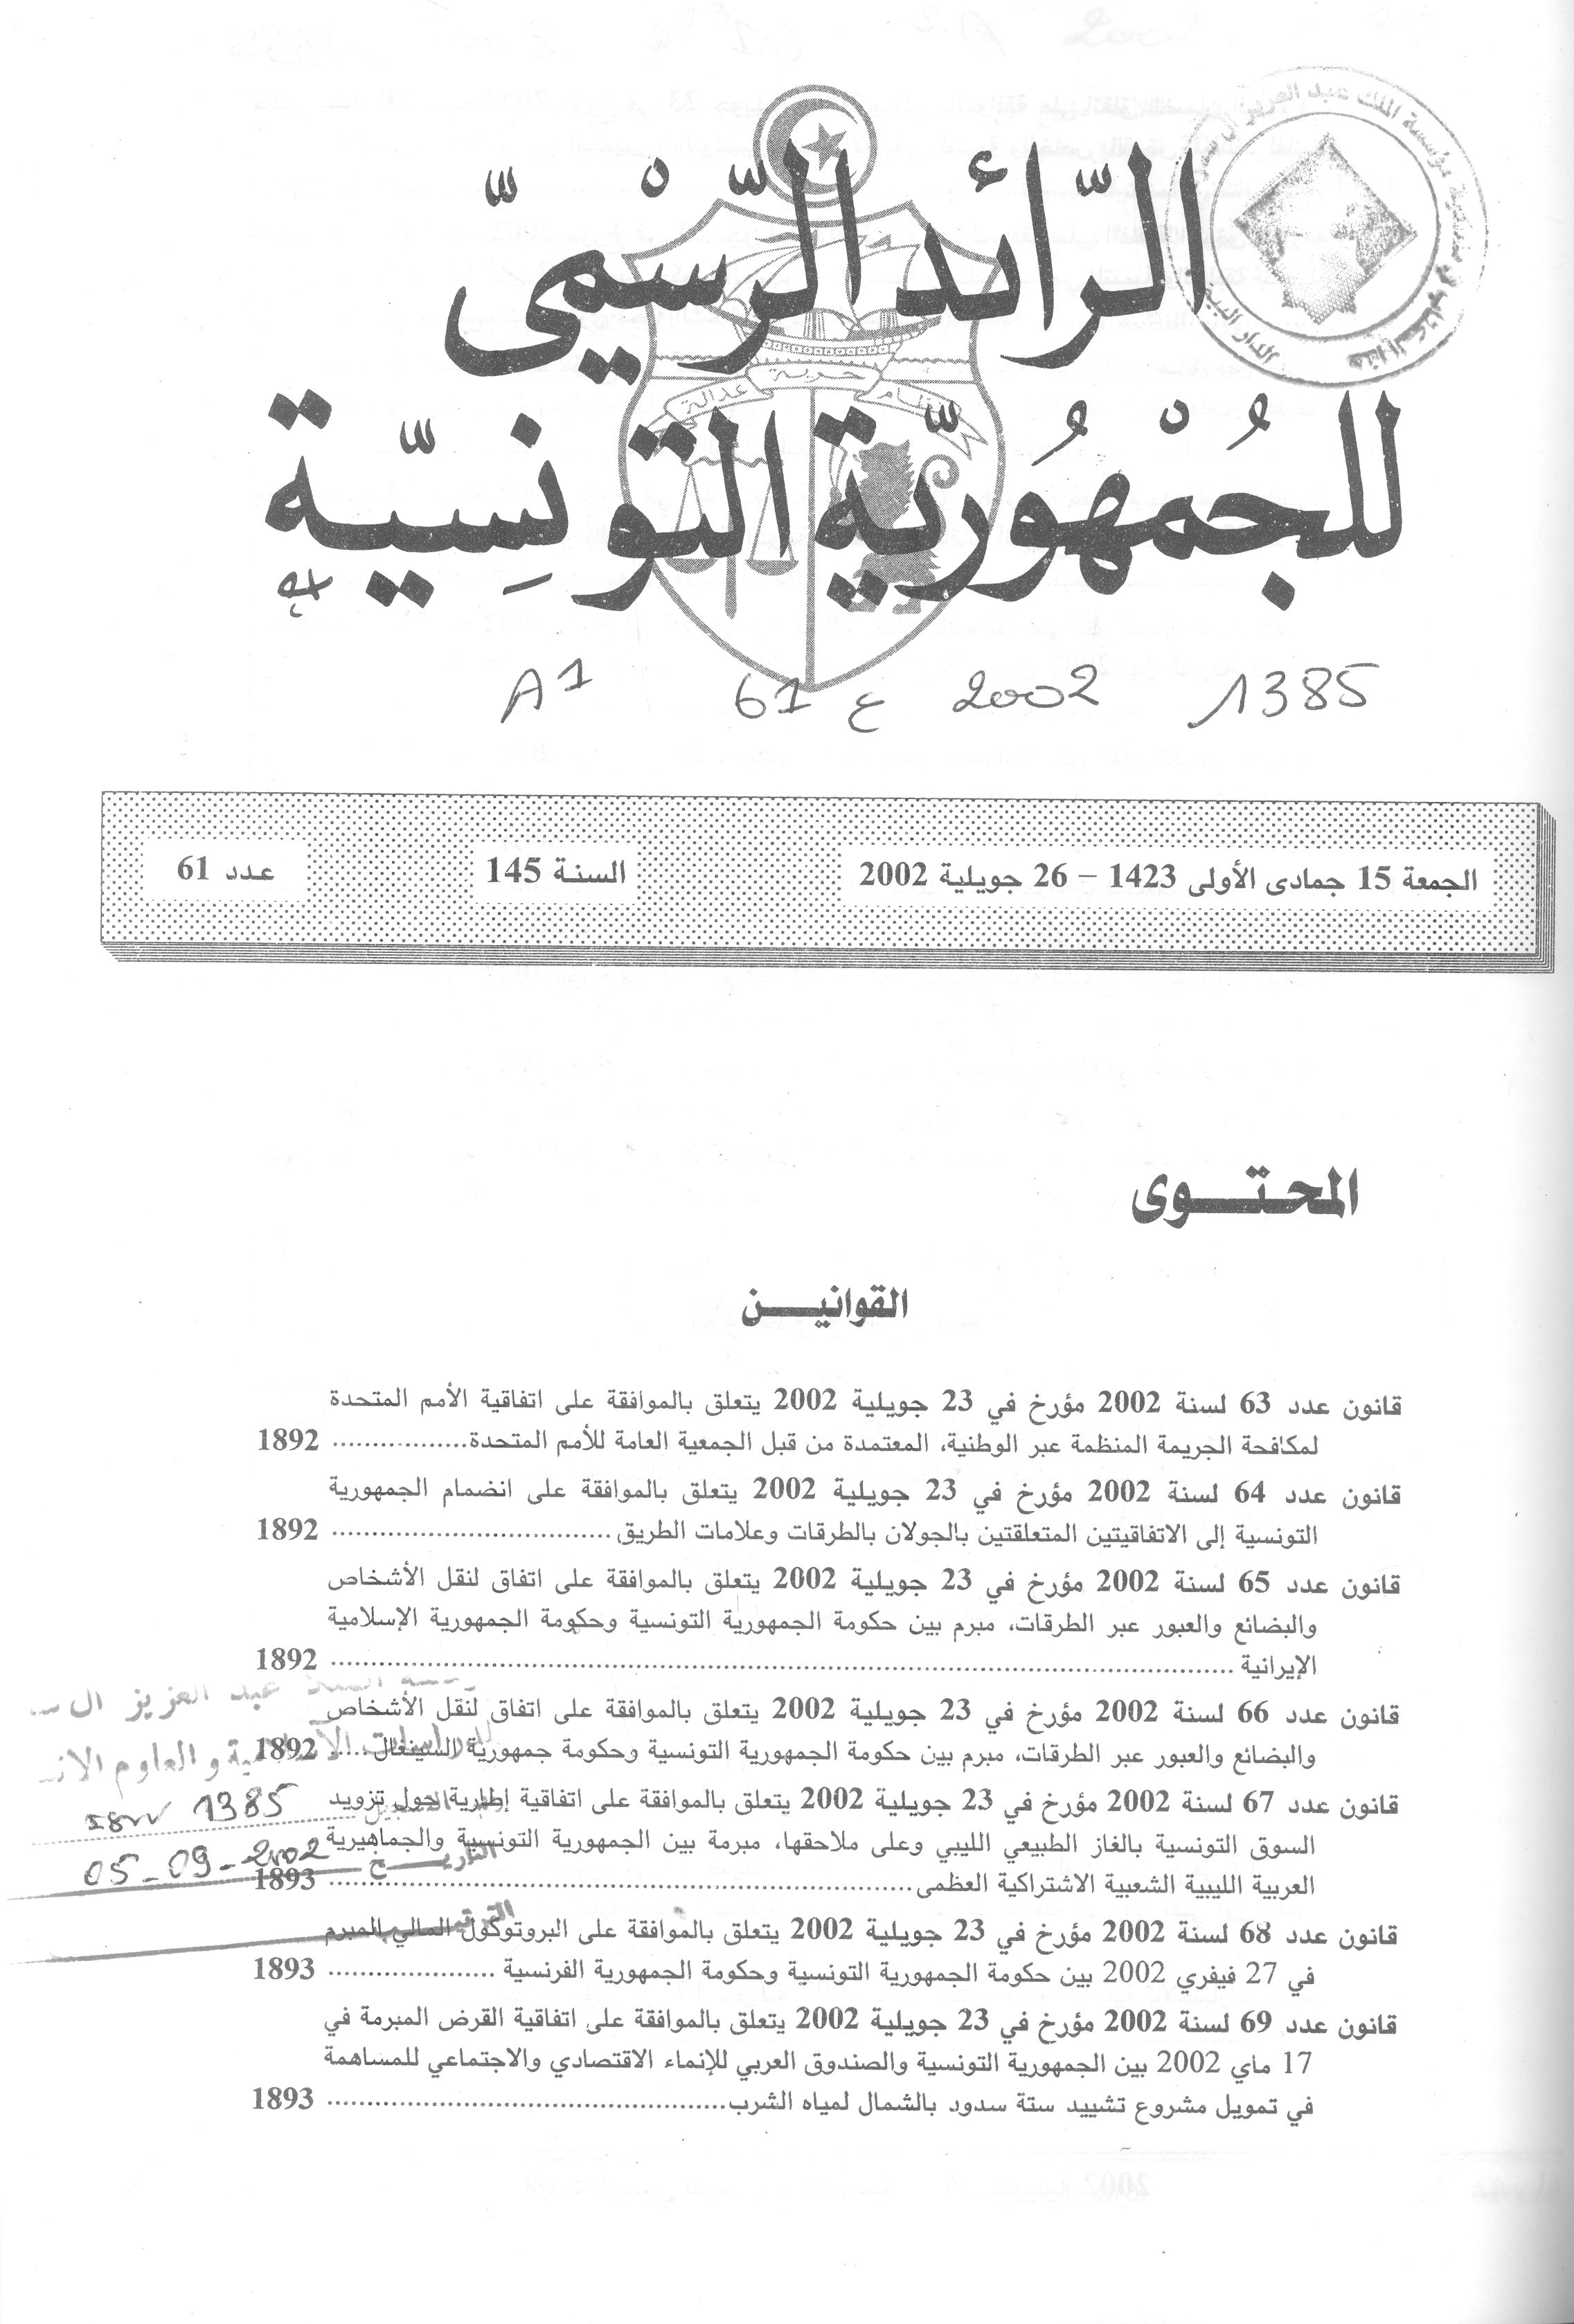 الرّائد الرّسْميّ
للجُمْهُوريّة التونِسيّة
حرية
نظام
عدالة
A1 61 ع 2002 1385
الجمعة 15 جمادى الأولى 1423 – 26 جويلية 2002
السنة 145
عدد 61
المحتوى
القوانين
قانون عدد 63 لسنة 2002 مؤرخ في 23 جويلية 2002 يتعلق بالموافقة على اتفاقية الأمم المتحدة
لمكافحة الجريمة المنظمة عبر الوطنية، المعتمدة من قبل الجمعية العامة للأمم المتحدة................. 1892
قانون عدد 64 لسنة 2002 مؤرخ في 23 جويلية 2002 يتعلق بالموافقة على انضمام الجمهورية
التونسية إلى الاتفاقيتين المتعلقتين بالجولان بالطرقات وعلامات الطريق................................... 1892
قانون عدد 65 لسنة 2002 مؤرخ في 23 جويلية 2002 يتعلق بالموافقة على اتفاق لنقل الأشخاص
والبضائع والعبور عبر الطرقات، مبرم بين حكومة الجمهورية التونسية وحكومة الجمهورية الإسلامية
الإيرانية ................................................................................ 1892
قانون عدد 66 لسنة 2002 مؤرخ في 23 جويلية 2002 يتعلق بالموافقة على اتفاق لنقل الأشخاص
والبضائع والعبور عبر الطرقات، مبرم بين حكومة الجمهورية التونسية وحكومة جمهورية السينغال..... 1892
قانون عدد 67 لسنة 2002 مؤرخ في 23 جويلية 2002 يتعلق بالموافقة على اتفاقية إطارية حول تزويد
السوق التونسية بالغاز الطبيعي الليبي وعلى ملاحقها، مبرمة بين الجمهورية التونسية والجماهيرية
العربية الليبية الشعبية الاشتراكية العظمى................................................................ 1893
قانون عدد 68 لسنة 2002 مؤرخ في 23 جويلية 2002 يتعلق بالموافقة على البروتوكول المالي المبرم
في 27 فيفري 2002 بين حكومة الجمهورية التونسية وحكومة الجمهورية الفرنسية ..................... 1893
قانون عدد 69 لسنة 2002 مؤرخ في 23 جويلية 2002 يتعلق بالموافقة على اتفاقية القرض المبرمة في
17 ماي 2002 بين الجمهورية التونسية والصندوق العربي للإنماء الاقتصادي والاجتماعي للمساهمة
في تمويل مشروع تشييد ستة سدود بالشمال لمياه الشرب.................................................. 1893
عبد العزيز ال
والعلوم
1385
التاريخ 05-09-2002